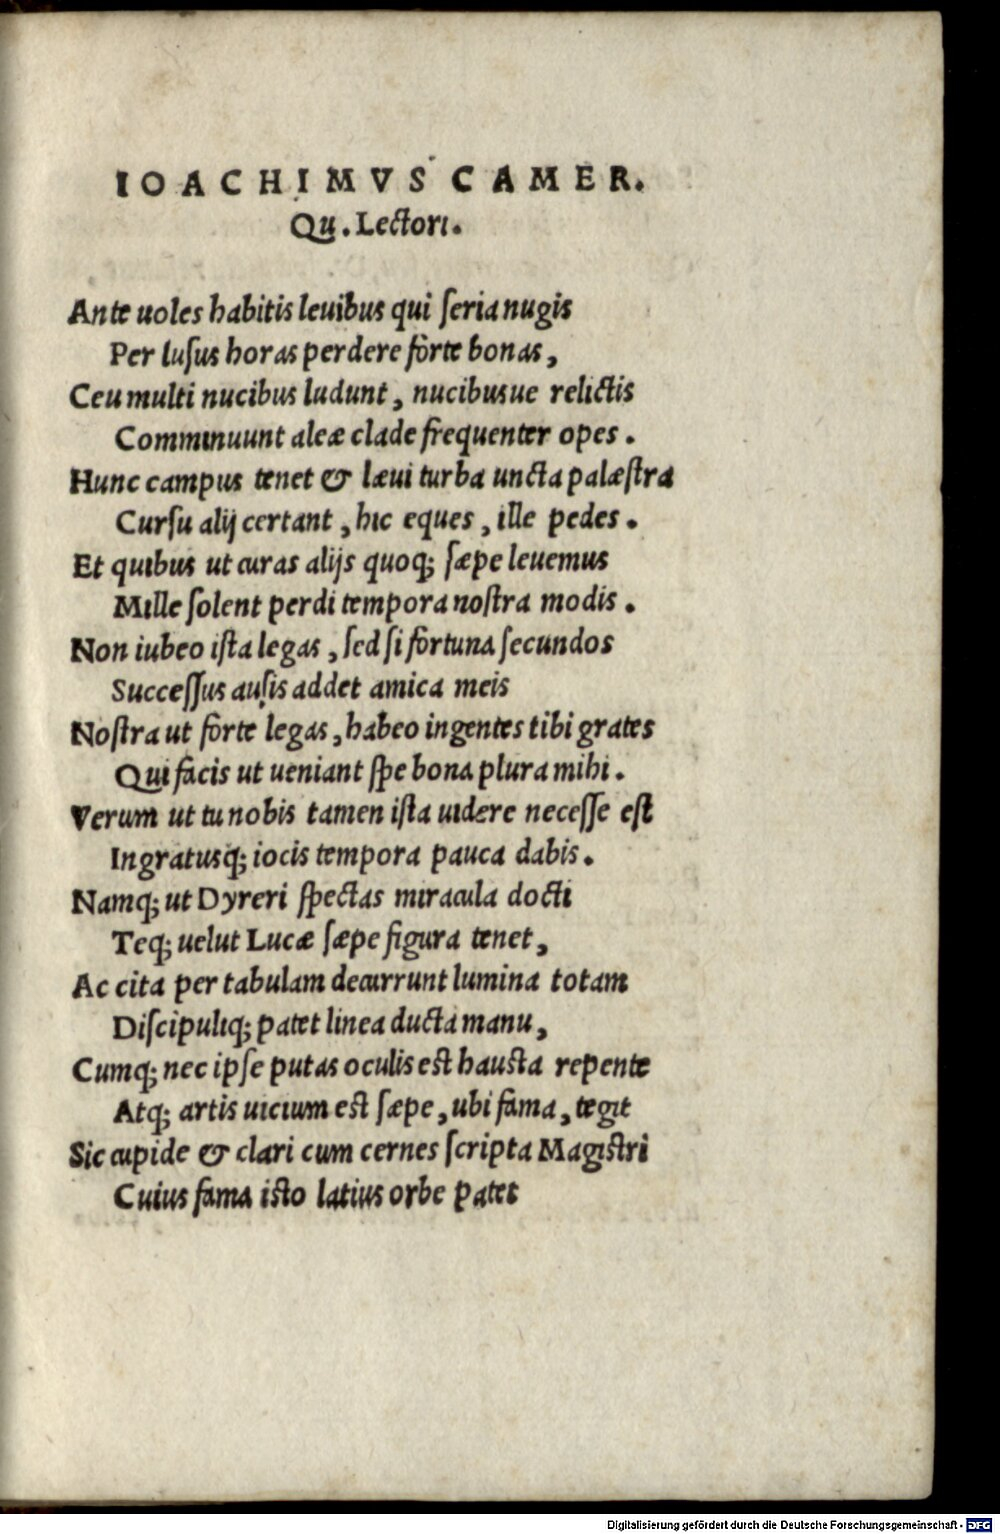 IOACHIMVS CAMER.
Qu. Lectori.
Ante uoles habitis leuibus qui seria nugis
Per lusus horas perdere forte bonas,
Ceu multi nucibus ludunt, nucibusue relictis
Comminuunt aleæ clade frequenter opes.
Hunc campus tenet & læui turba uncta palæstra
Cursu alij certant, hic eques, ille pedes.
Et quibus ut curas alijs quoq; sæpe leuemus
Mille solent perdi tempora nostra modis.
Non iubeo ista legas, sed si fortuna secundos
Successus ausis addet amica meis
Nostra ut forte legas, habeo ingentes tibi grates
Qui facis ut ueniant spe bona plura mihi.
Verum ut tu nobis tamen ista uidere necesse est
Ingratusq; iocis tempora pauca dabis.
Namq; ut Dyreri spectas miracula docti
Teq; uelut Lucæ sæpe figura tenet,
Ac cita per tabulam decurrunt lumina totam
Discipuliq; patet linea ducta manu,
Cumq; nec ipse putas oculis est hausta repente
Atq; artis uicium est sæpe, ubi fama, tegit
Sic cupide & clari cum cernes scripta Magistri
Cuius fama isto latius orbe patet
Digitalisierung gefördert durch die Deutsche Forschungsgemeinschaft - DFG